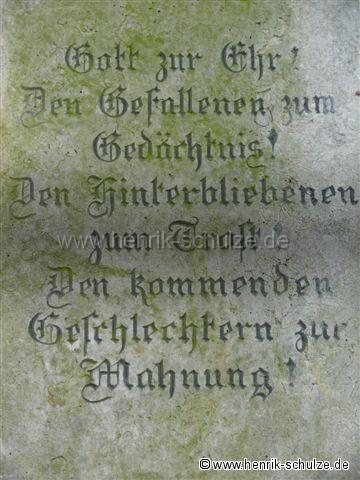 Gott zur Ehr!
Den Gefallenen zum
Gedächtnis!
Den Hinterbliebenen
zum Trost!
www.henrik-schulze.de
Den kommenden
Geschlechtern zur
Mahnung!
© www.henrik-schulze.de